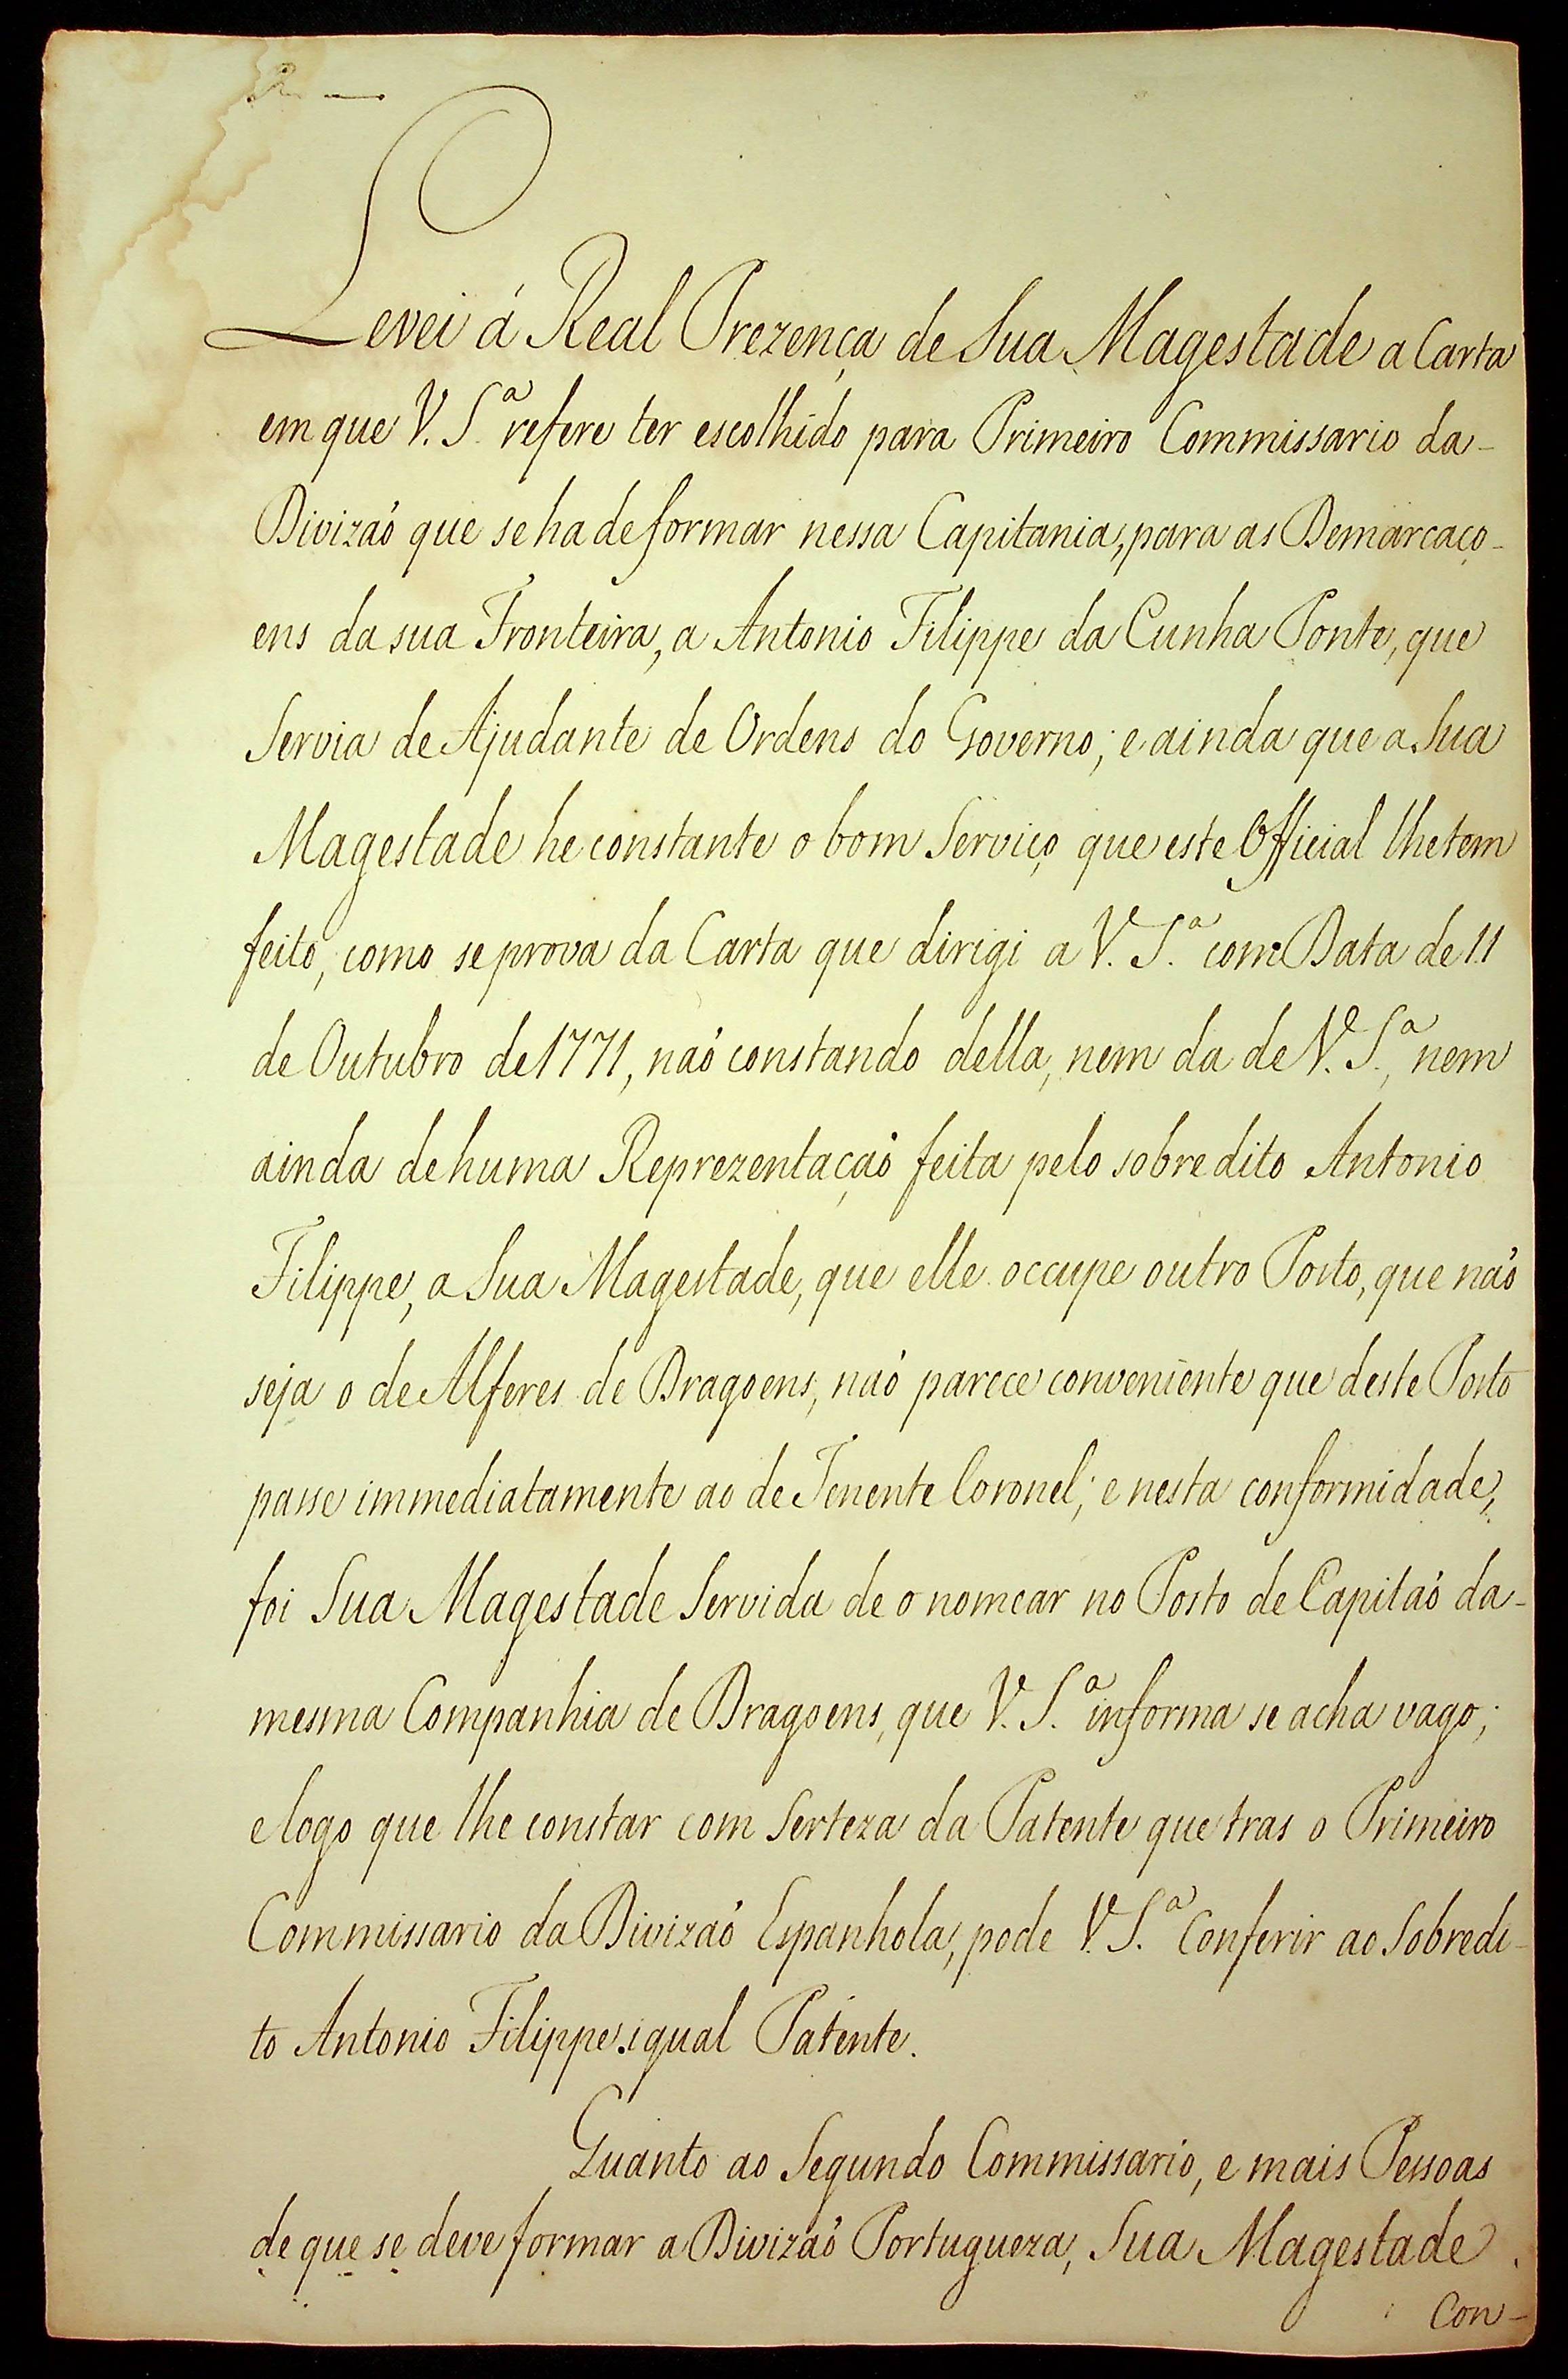 2. —
Levei á Real Prezença de Sua Magestade a Carta
em que V. S.ª refere ter escolhido para Primeiro Commissario da-
Divizaõ que se ha de formar nessa Capitania, para as Demarcaço-
ens da sua Fronteira, a Antonio Filippe da Cunha Ponte, que
Servia de Ajudante de Ordens do Governo; e ainda que a Sua
Magestade he constante o bom Serviço que este Official lhe tem
feito, como se prova da Carta que dirigi a V. S.ª com Data de 11
de Outubro de 1771, naõ constando della, nem da de V. S.ª, nem
ainda de huma Reprezentaçaõ feita pelo sobredito Antonio
Filippe, a Sua Magestade, que elle occupe outro Posto, que naõ
seja o de Alferes de Dragoens, naõ parece conveniente que deste Posto
passe immediatamente ao de Tenente Coronel; e nesta conformidade,
foi Sua Magestade Servida de o nomear no Posto de Capitaõ da-
mesma Companhia de Dragoens, que V. S.ª informa se acha vago;
e logo que lhe constar com Serteza da Patente que tras o Primeiro
Commissario da Divizaõ Espanhola, pode V. S.ª Conferir ao Sobredi-
to Antonio Filippe igual Patente.
Quanto ao Segundo Commissario, e mais Pessoas
de que se deve formar a Divizaõ Portugueza, Sua Magestade
Con-